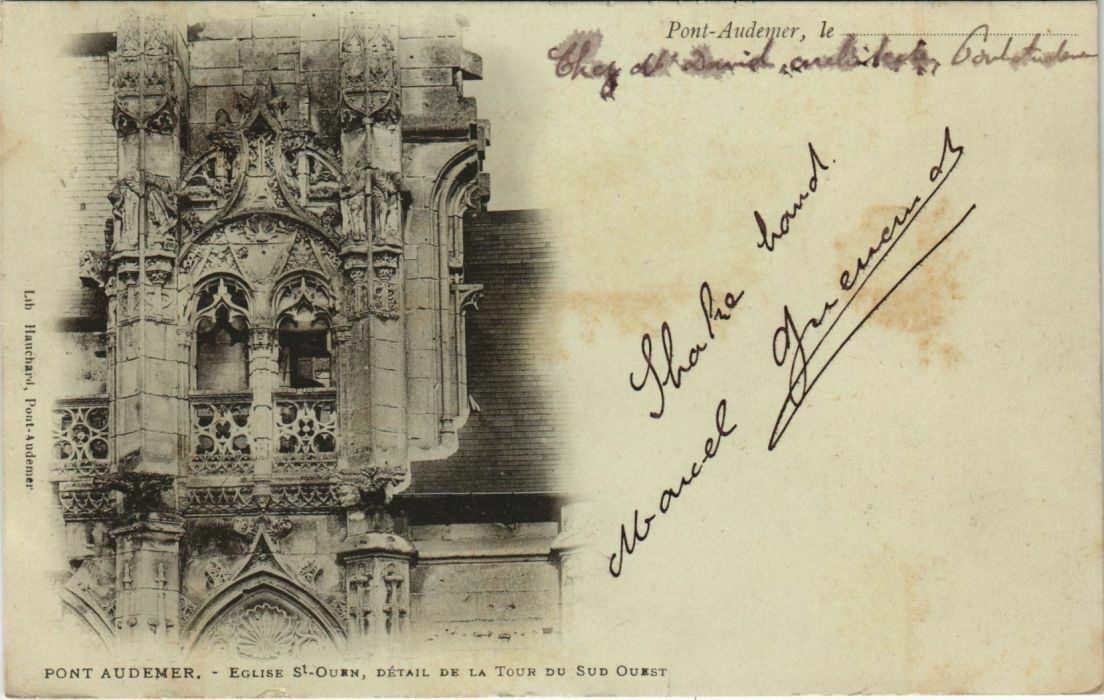 Pont-Audemer, le
Chez Mr David, architecte, Pont-Audemer
Shake hand.
Marcel Quemerais
Lib Hauchard, Pont-Audemer
PONT AUDEMER. - EGLISE St-OUEN, DÉTAIL DE LA TOUR DU SUD OUEST